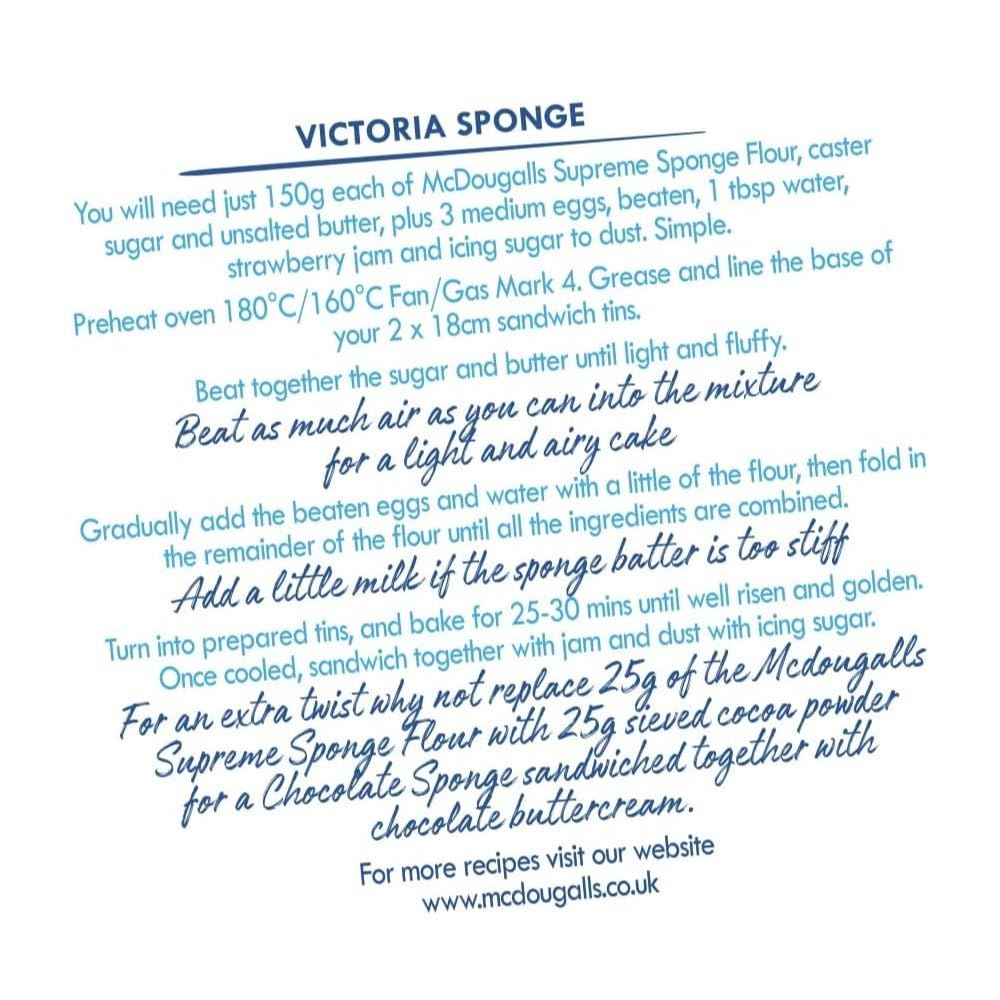 VICTORIA SPONGE
You will need just 150g each of McDougalls Supreme Sponge Flour, caster
sugar and unsalted butter, plus 3 medium eggs, beaten, 1 tbsp water,
strawberry jam and icing sugar to dust. Simple.
Preheat oven 180°C/160°C Fan/Gas Mark 4. Grease and line the base of
your 2 x 18cm sandwich tins.
Beat together the sugar and butter until light and fluffy.
Beat as much air as you can into the mixture
for a light and airy cake
Gradually add the beaten eggs and water with a little of the flour, then fold in
the remainder of the flour until all the ingredients are combined.
Add a little milk if the sponge batter is too stiff
Turn into prepared tins, and bake for 25-30 mins until well risen and golden.
Once cooled, sandwich together with jam and dust with icing sugar.
For an extra twist why not replace 25g of the Mcdougalls
Supreme Sponge Flour with 25g sieved cocoa powder
for a Chocolate Sponge sandwiched together with
chocolate buttercream.
For more recipes visit our website
www.mcdougalls.co.uk